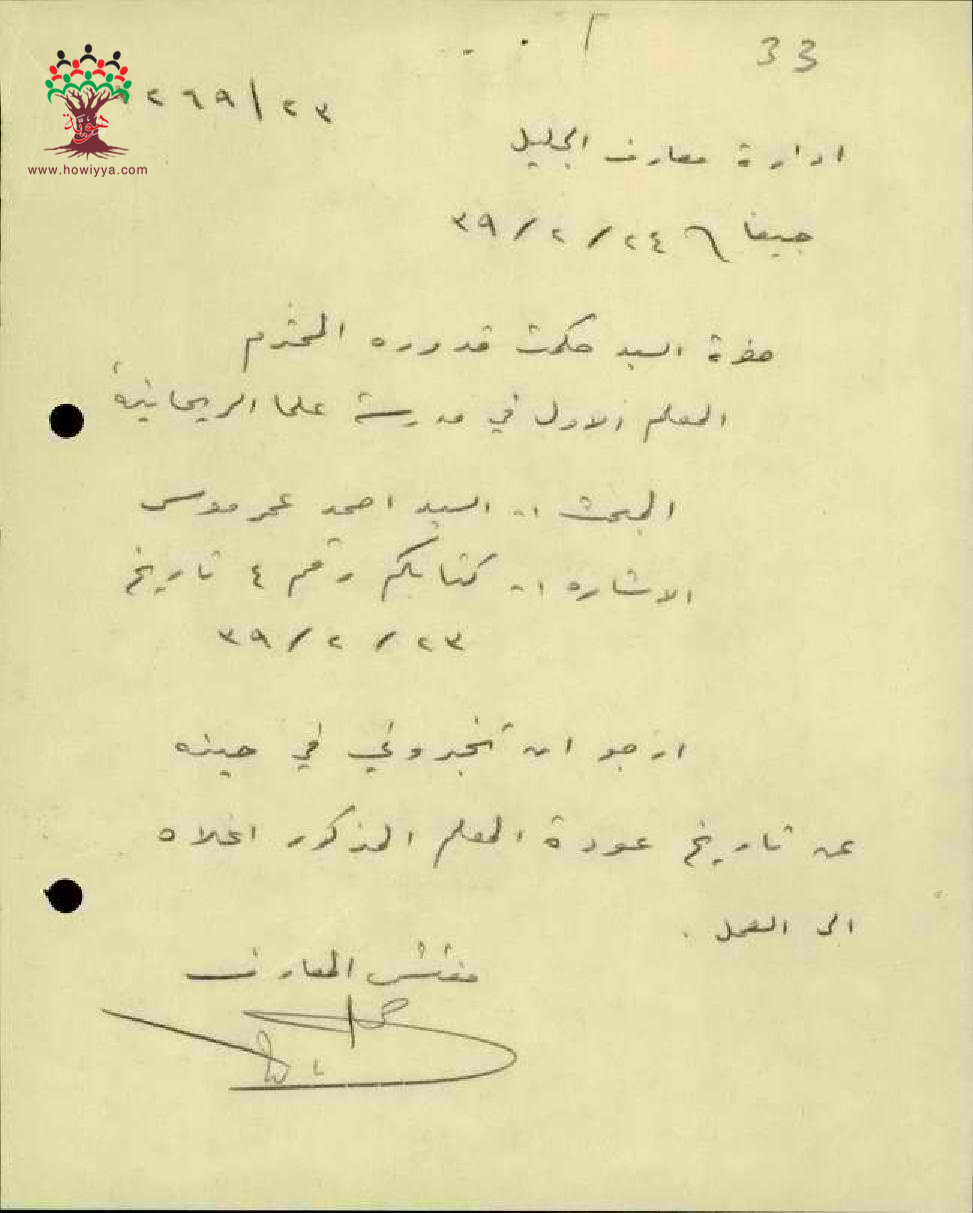 33
٢٦٩/٢٣
هوية
www.howiyya.com
ادارة معارف الجليل
حيفا ٢٤/٢/٣٩
حضرة السيد حكمت قدوره المحترم
المعلم الاول في مدرسة علما الريحانية
المبحث :- السيد احمد عمر موسى
الاشاره :- كتابكم رقم ٤ تاريخ
٢٣/٢/٣٩
ارجو ان تخبروني في حينه
عن تاريخ عودة المعلم المذكور اعلاه
الى العمل .
مفتش المعارف